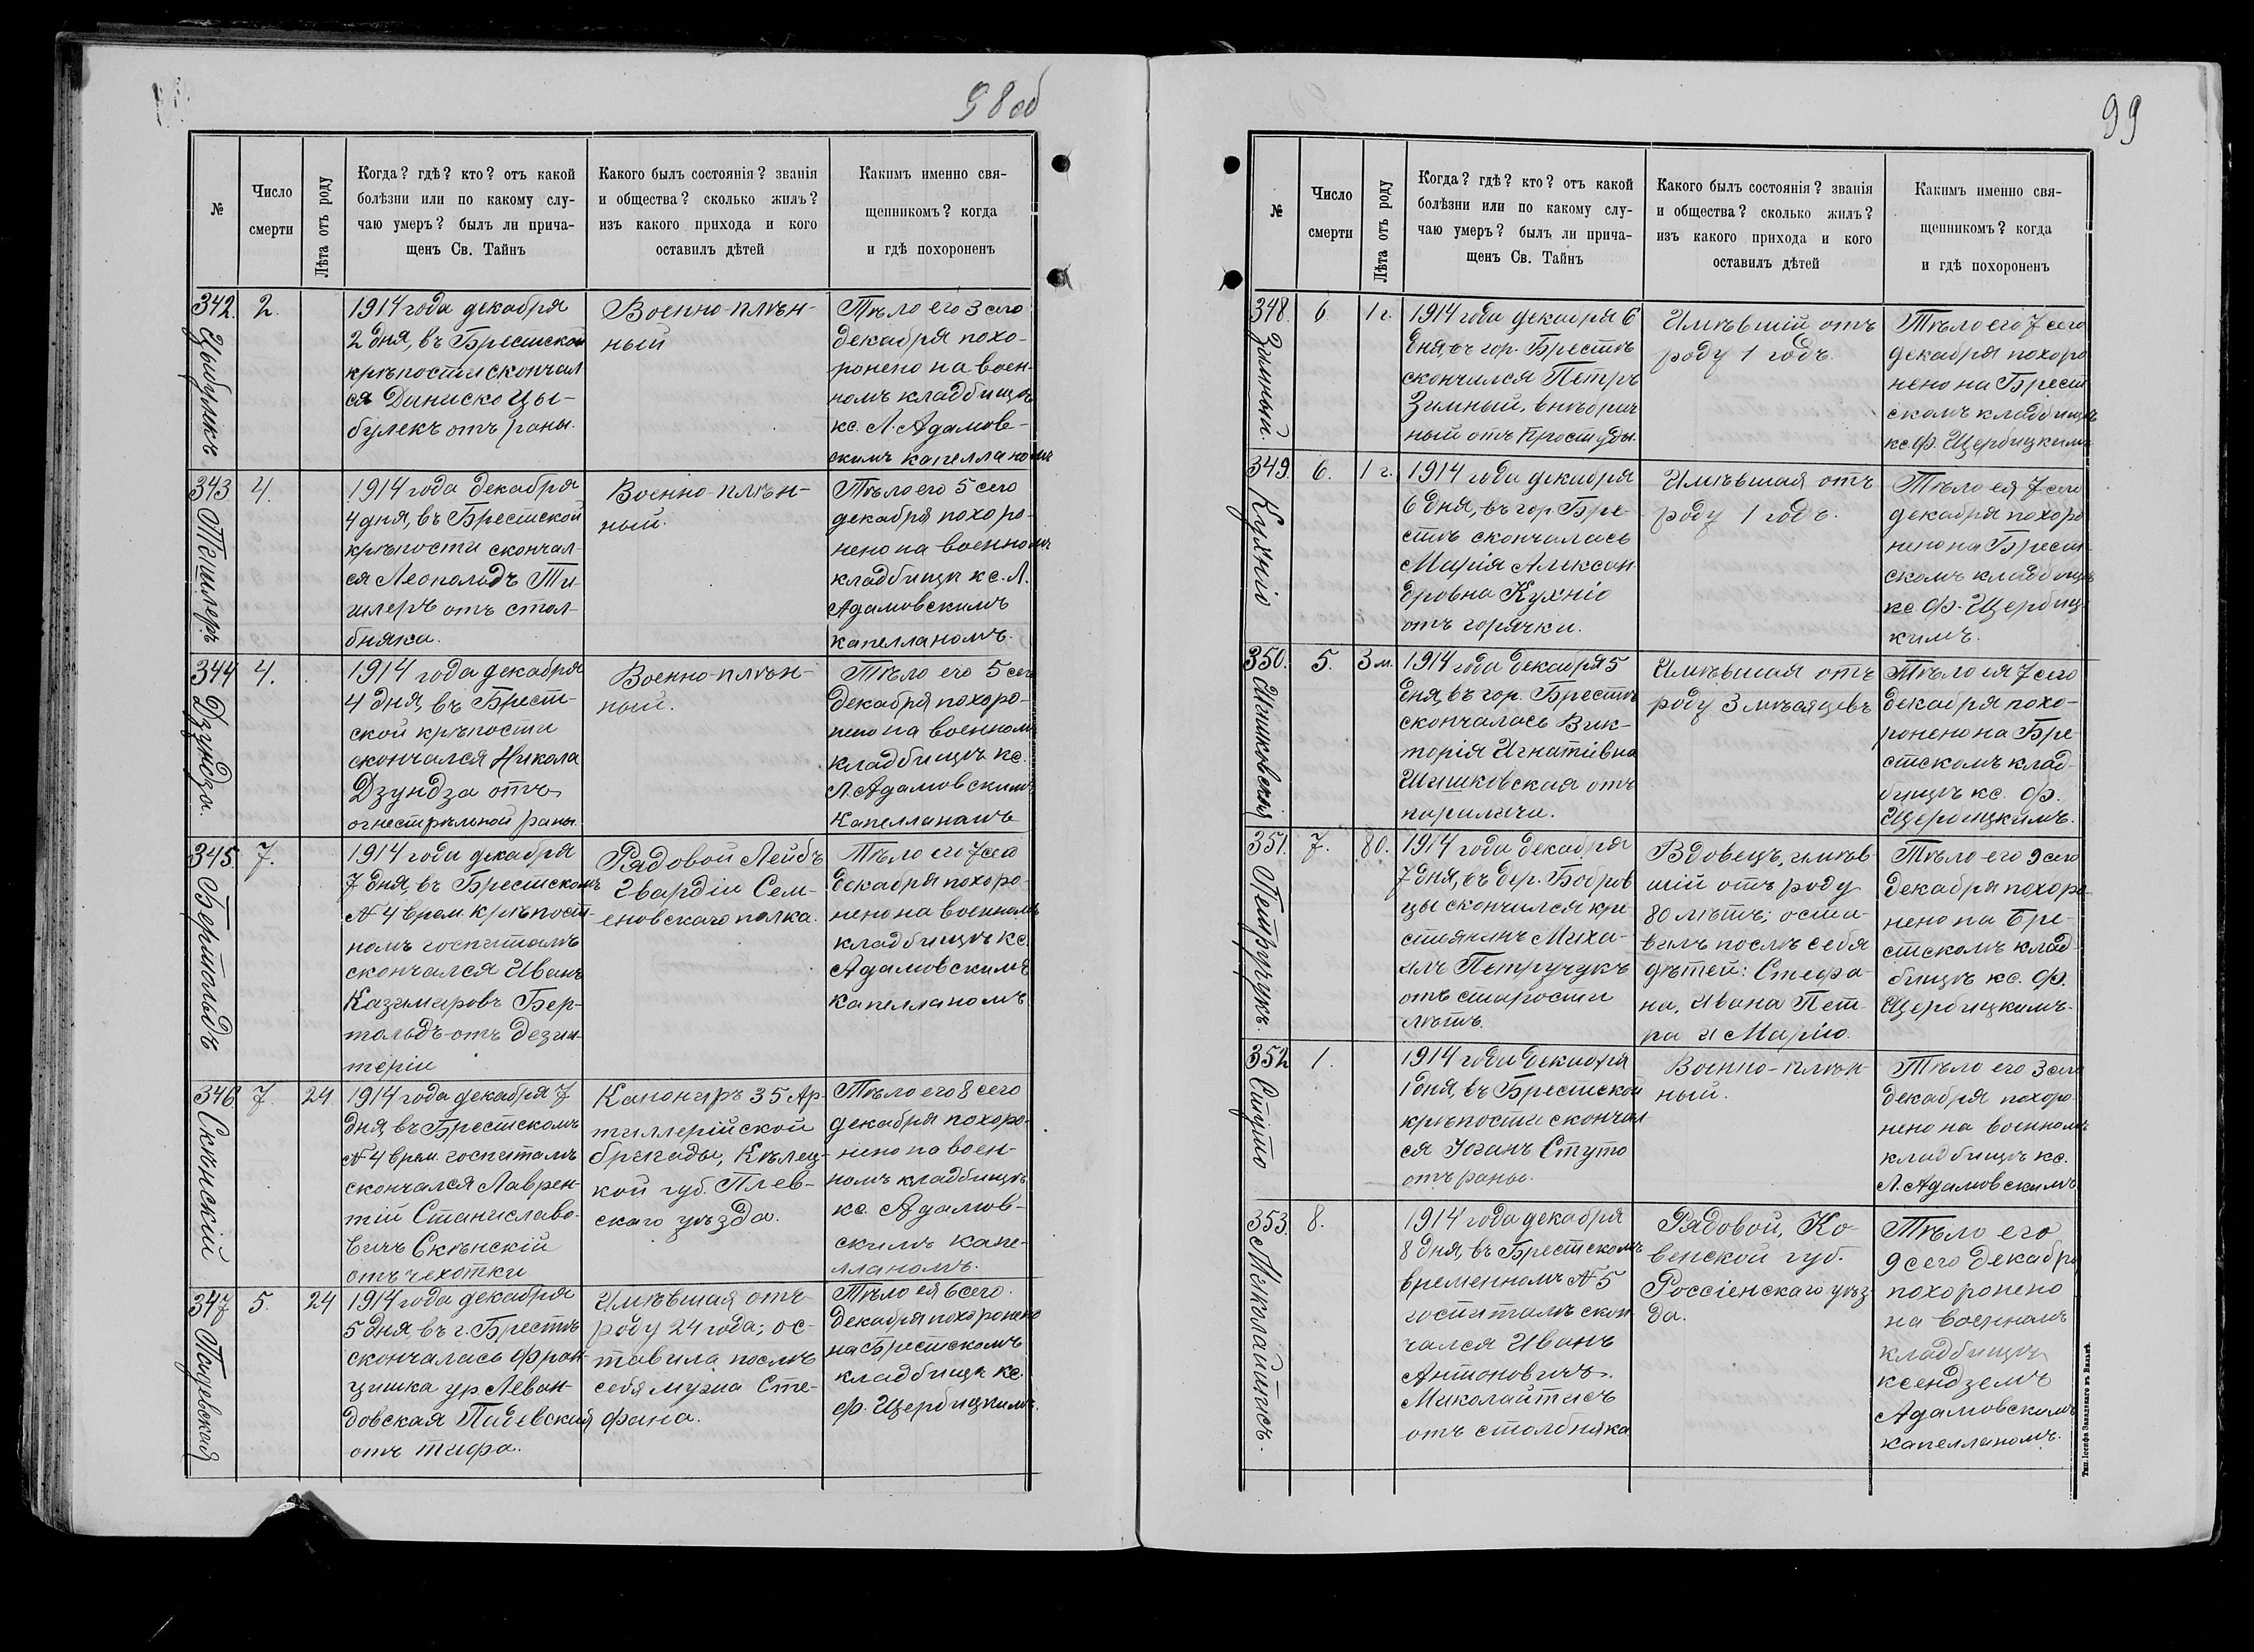 98об
№
Число
смерти
Лѣта отъ роду
Когда? гдѣ? кто? отъ какой
болѣзни или по какому слу-
чаю умеръ? былъ ли прича-
щенъ Св. Тайнъ
Какого былъ состоянія? званія
и общества? сколько жилъ?
изъ какого прихода и кого
оставилъ дѣтей
Какимъ именно свя-
щенникомъ? когда
и гдѣ похороненъ
342.
Цыбулекъ
2.
1914 года декабря
2 дня, въ Брестской
крѣпости скончал
ся Даниско Цы-
булекъ отъ раны.
Военно-плѣн-
ный
Тѣло его 3 сего
декабря похо-
ронено на воен-
номъ кладбищѣ
кс. Л. Адамов-
скимъ капелланомъ
343
Тишлеръ
4.
1914 года декабря
4 дня, въ Брестской
крѣпости скончал-
ся Леопольдъ Ти-
шлеръ отъ стол-
бняка.
Военно-плѣн-
ный.
Тѣло его 5 сего
декабря похоро-
нено на военномъ
кладбищѣ кс. Л.
Адамовскимъ
капелланомъ.
344
Дзундза.
4.
1914 года декабря
4 дня, въ Брест-
ской крѣпости
скончался Никола
Дзундза отъ
огнестрѣльной раны.
Военно-плѣн-
ный.
Тѣло его 5 сего
декабря похоро-
нено на военномъ
кладбищѣ кс.
Л. Адамовскимъ
капелланомъ
345.
Бертольдъ
7.
1914 года декабря
7 дня, въ Брестскомъ
№ 4 врем. крѣпост-
номъ госпиталѣ
скончался Иванъ
Казимировъ Бер-
тольдъ отъ дезин-
теріи
Рядовой Лейбъ
Гвардіи Сем-
еновскаго полка.
Тѣло его 7 сего
декабря похоро-
нено на военномъ
кладбищѣ кс.
Адамовскимъ
капелланомъ.
346
Скѣнскій
7.
24
1914 года декабря 7
дня, въ Брестскомъ
№ 4 врем. госпиталѣ
скончался Лаврен-
тій Станиславо-
вичъ Скѣнскій
отъ чехотки
Канониръ 35 Ар-
тиллерійской
бригады, Кѣлец-
кой губ. Плев-
скаго уѣзда.
Тѣло его 8 сего
декабря похоро-
нено на воен-
номъ кладбищѣ
кс. Адамов-
скимъ капе-
лланомъ.
347
5.
24
1914 года декабря
5 дня, въ г. Брестѣ
скончалась Фран-
цишка ур Леван-
довская
отъ тифа.
Имѣвшая отъ
роду 24 года; ос-
тавила послѣ
себя мужа Сте-
фана.
Тѣло ея 6 сего
декабря похоронено
на Брестскомъ
кладбищѣ кс.
Ф. Щербицкимъ.
99
№
Число
смерти
Лѣта отъ роду
Когда? гдѣ? кто? отъ какой
болѣзни или по какому слу-
чаю умеръ? былъ ли прича-
щенъ Св. Тайнъ
Какого былъ состоянія? званія
и общества? сколько жилъ?
изъ какого прихода и кого
оставилъ дѣтей
Какимъ именно свя-
щенникомъ? когда
и гдѣ похороненъ
348.
Зимный.
6
1 г.
1914 года декабря 6
дня, въ гор. Брестѣ
скончался Петръ
Зимный, внѣбрач
ный отъ простуды.
Имѣвшій отъ
роду 1 годъ.
Тѣло его 7 сего
декабря похоро
нено на Брест
скомъ кладбищѣ
кс. Ф. Щербицкимъ
349.
Кухніо
6.
1 г.
1914 года декабря
6 дня, въ гор. Бре-
стѣ скончалась
Марія Алексан
дровна Кухніо
отъ горячки.
Имѣвшая отъ
роду 1 годъ.
Тѣло ея 7 сего
декабря похоро
нено на Брест-
скомъ кладбищѣ
кс Ф. Щербиц-
кимъ.
350.
Шишковская
5.
3 м.
1914 года декабря 5
дня, въ гор. Брестѣ
скончалась Вик-
торія Игнатьевна
Шишковская отъ
паралича.
Имѣвшая отъ
роду 3 мѣсяцевъ
Тѣло ея 7 сего
декабря похо-
ронено на Бре-
стскомъ клад-
бищѣ кс. Ф.
Щербицкимъ.
351.
Петручукъ.
7.
80.
1914 года декабря
7 дня, въ дер. Бобров
цы скончился кре
стьянинъ Миха-
илъ Петручукъ
отъ старости
лѣтъ.
Вдовецъ, имѣв
шій отъ роду
80 лѣтъ; оста-
вилъ послѣ себя
дѣтей: Стефа-
на, Ивана Пет-
ра и Марію.
Тѣло его 9 сего
декабря похоро
нено на Бре-
стскомъ клад-
бищѣ кс. Ф.
Щербицкимъ.
352
Стуто
1.
1914 года декабря
1 дня, въ Брестской
крѣпости скончал
ся Іоганъ Стуто
отъ раны.
Военно-плѣн-
ный.
Тѣло его 3 сего
декабря похоро
нено на военномъ
кладбищѣ кс.
Л. Адамовскимъ
353.
Миколайтисъ.
8.
1914 года декабря
8 дня, въ Брестскомъ
временномъ № 5
госпиталѣ скон
чался Иванъ
Антоновичъ
Миколайтисъ
отъ столбняка
Рядовой, Ко-
венской губ.
Россіенскаго уѣз-
да.
Тѣло его
9 сего декабря
похоронено
на военномъ
кладбищѣ
ксендземъ
Адамовскимъ
капелланомъ.
Тип. Іосифа Завадзкаго въ Вильнѣ